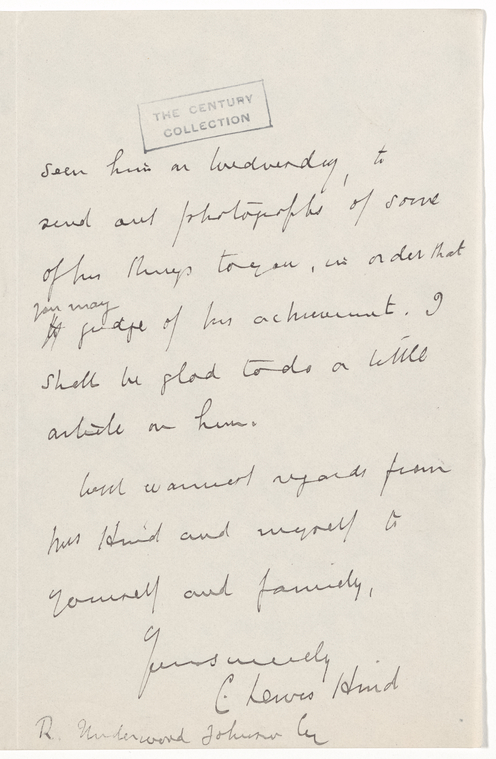 THE CENTURY
COLLECTION
seen him on Wednesday, to
send out photographs of some
of his things to you, in order that
you may
judge of his achievement. I
shall be glad to do a little
article on him.
With warmest regards from
Mrs Hind and myself to
yourself and family,
Yours sincerely
C. Lewis Hind
R. Underwood Johnson Esq